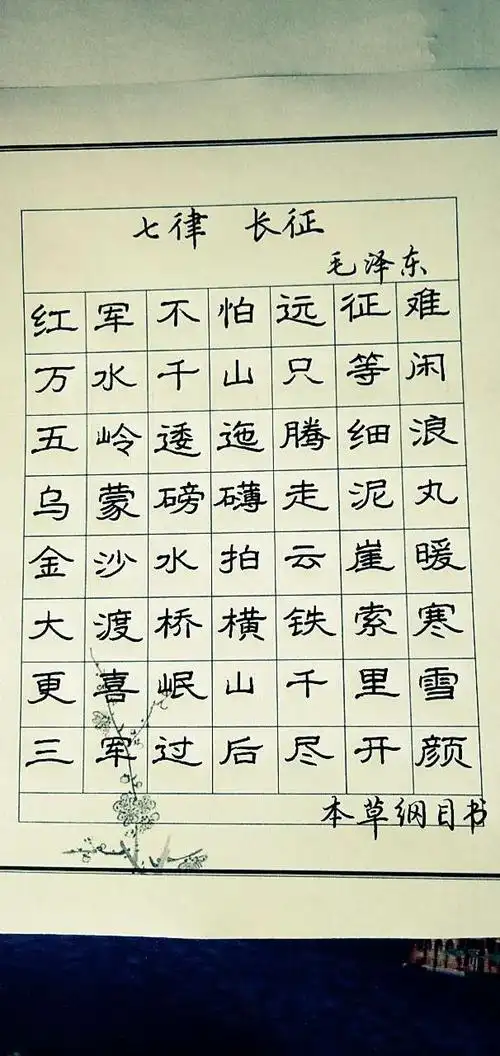 七律 长征
毛泽东
红军不怕远征难
万水千山只等闲
五岭逶迤腾细浪
乌蒙磅礴走泥丸
金沙水拍云崖暖
大渡桥横铁索寒
更喜岷山千里雪
三军过后尽开颜
本草纲目书